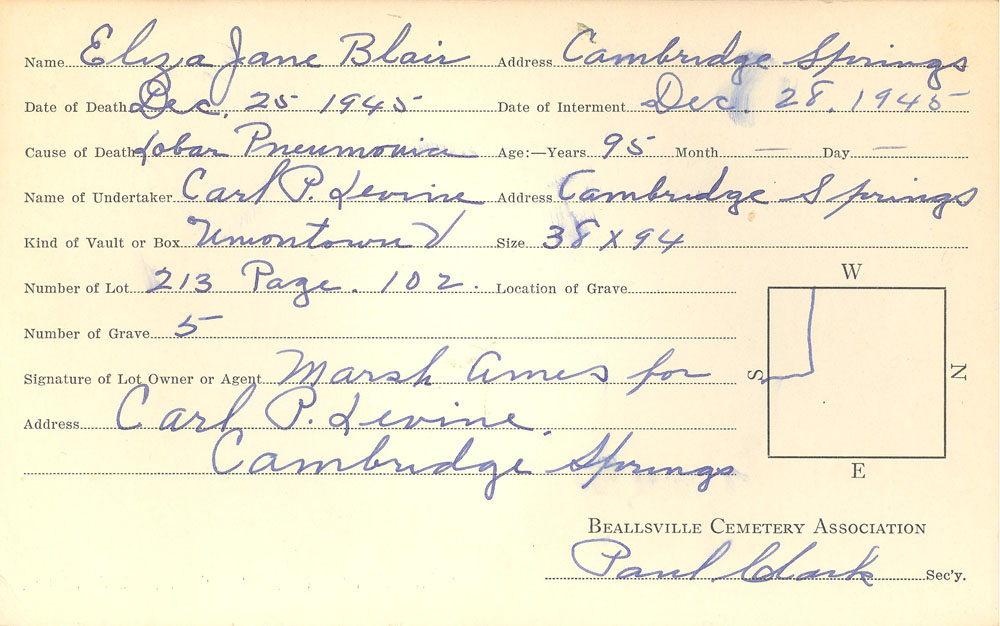 Name Eliza Jane Blair Address Cambridge Springs
Date of Death Dec. 25 1945 Date of Interment Dec. 28, 1945
Cause of Death Lobar Pneumonia Age:—Years 95 Month — Day —
Name of Undertaker Carl P. Levine Address Cambridge Springs
Kind of Vault or Box Uniontown V Size 38 X 94
Number of Lot 213 Page. 102. Location of Grave
W
Number of Grave 5
S N
Signature of Lot Owner or Agent Marsh Ames for
Address Carl P. Levine.
Cambridge Springs
E
BEALLSVILLE CEMETERY ASSOCIATION
Paul Clark Sec'y.